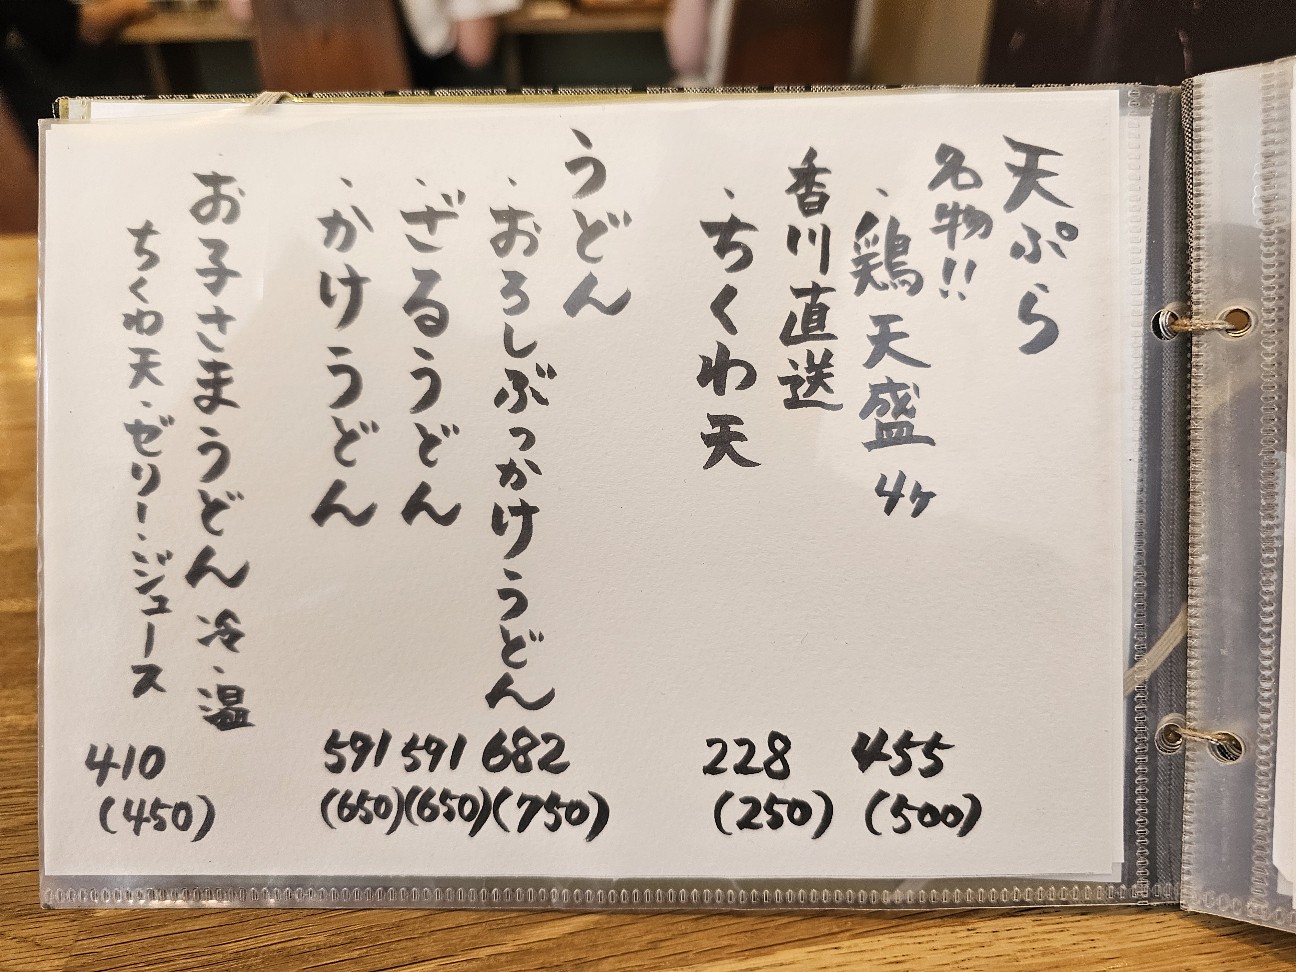 天ぷら
名物!!
・鶏天盛 4ヶ 455 (500)
香川直送
・ちくわ天 228 (250)
うどん
・おろしぶっかけうどん 682 (750)
・ざるうどん 591 (650)
・かけうどん 591 (650)
・お子さまうどん 冷・温
ちくわ天・ゼリー・ジュース 410 (450)